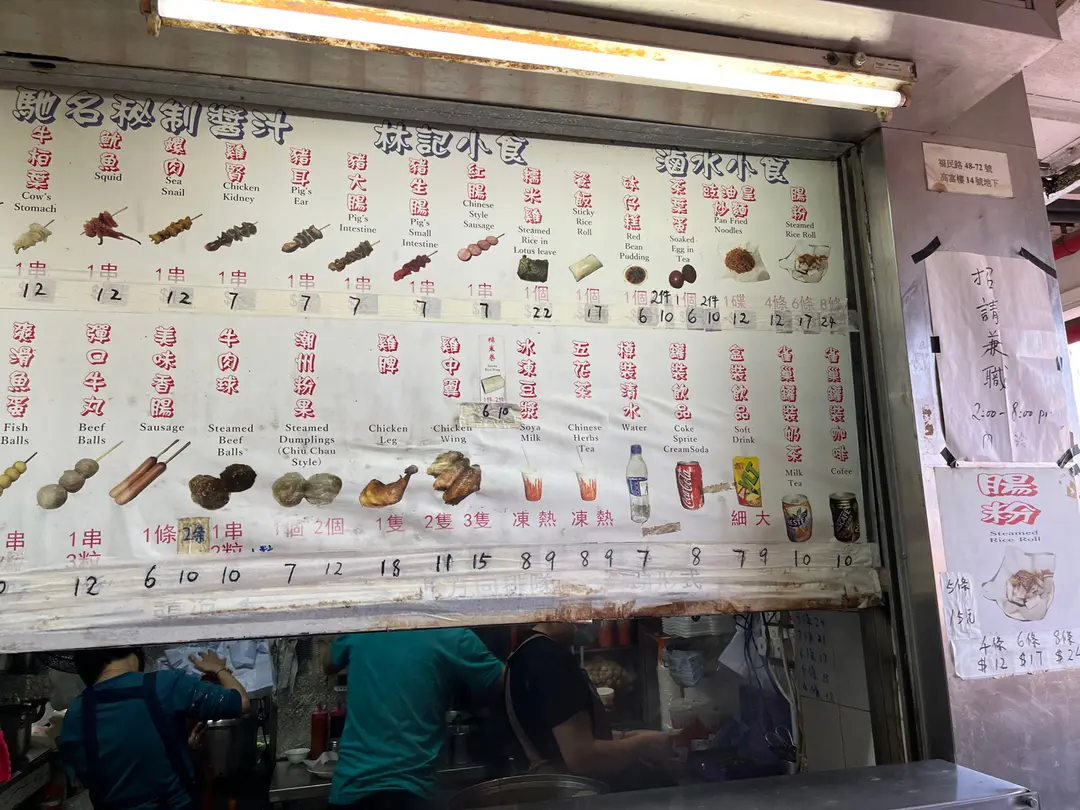 馳名秘制醬汁 林記小食 滷水小食
牛栢葉 魷魚 螺肉 雞腎 豬耳 豬大腸 豬生腸 紅腸 糯米雞 滋飯 砵仔糕 茶葉蛋 豉油皇炒麵 腸粉
Cow's Stomach Squid Sea Snail Chicken Kidney Pig's Ear Pig's Intestine Pig's Small Intestine Chinese Style Sausage Steamed Rice in Lotus leave Sticky Rice Roll Red Bean Pudding Soaked Egg in Tea Pan Fried Noodles Steamed Rice Roll
1串 1串 1串 1串 1串 1串 1串 1串 1個 1個 1個 2件 1個 2件 1碟 4條 6條 8條
12 12 12 7 7 7 7 7 22 17 6 10 6 10 12 12 17 24
滑魚蛋 彈口牛丸 美味香腸 牛肉球 潮州粉果 雞髀 雞中翼 冰凍豆漿 五花茶 樽裝清水 罐裝飲品 盒裝飲品 雀巢罐裝奶茶 雀巢罐裝咖啡
6 10
Fish Balls Beef Balls Sausage Steamed Beef Balls Steamed Dumplings (Chiu Chau Style) Chicken Leg Chicken Wing Soya Milk Chinese Herbs Tea Water Coke Sprite CreamSoda Soft Drink Milk Tea Cofee
串 1串 3粒 1條 2條 1串 2粒 1個 2個 1隻 2隻 3隻 凍 熱 凍 熱 細 大
12 6 10 10 7 12 18 11 15 8 9 8 9 7 8 7 9 10 10
福民路 48-72 號
高富樓 14 號地下
招請兼職
2:00-8:00 pm
腸粉
Steamed
Rice Roll
5條
15元
4條 6條 8條
$12 $17 $24